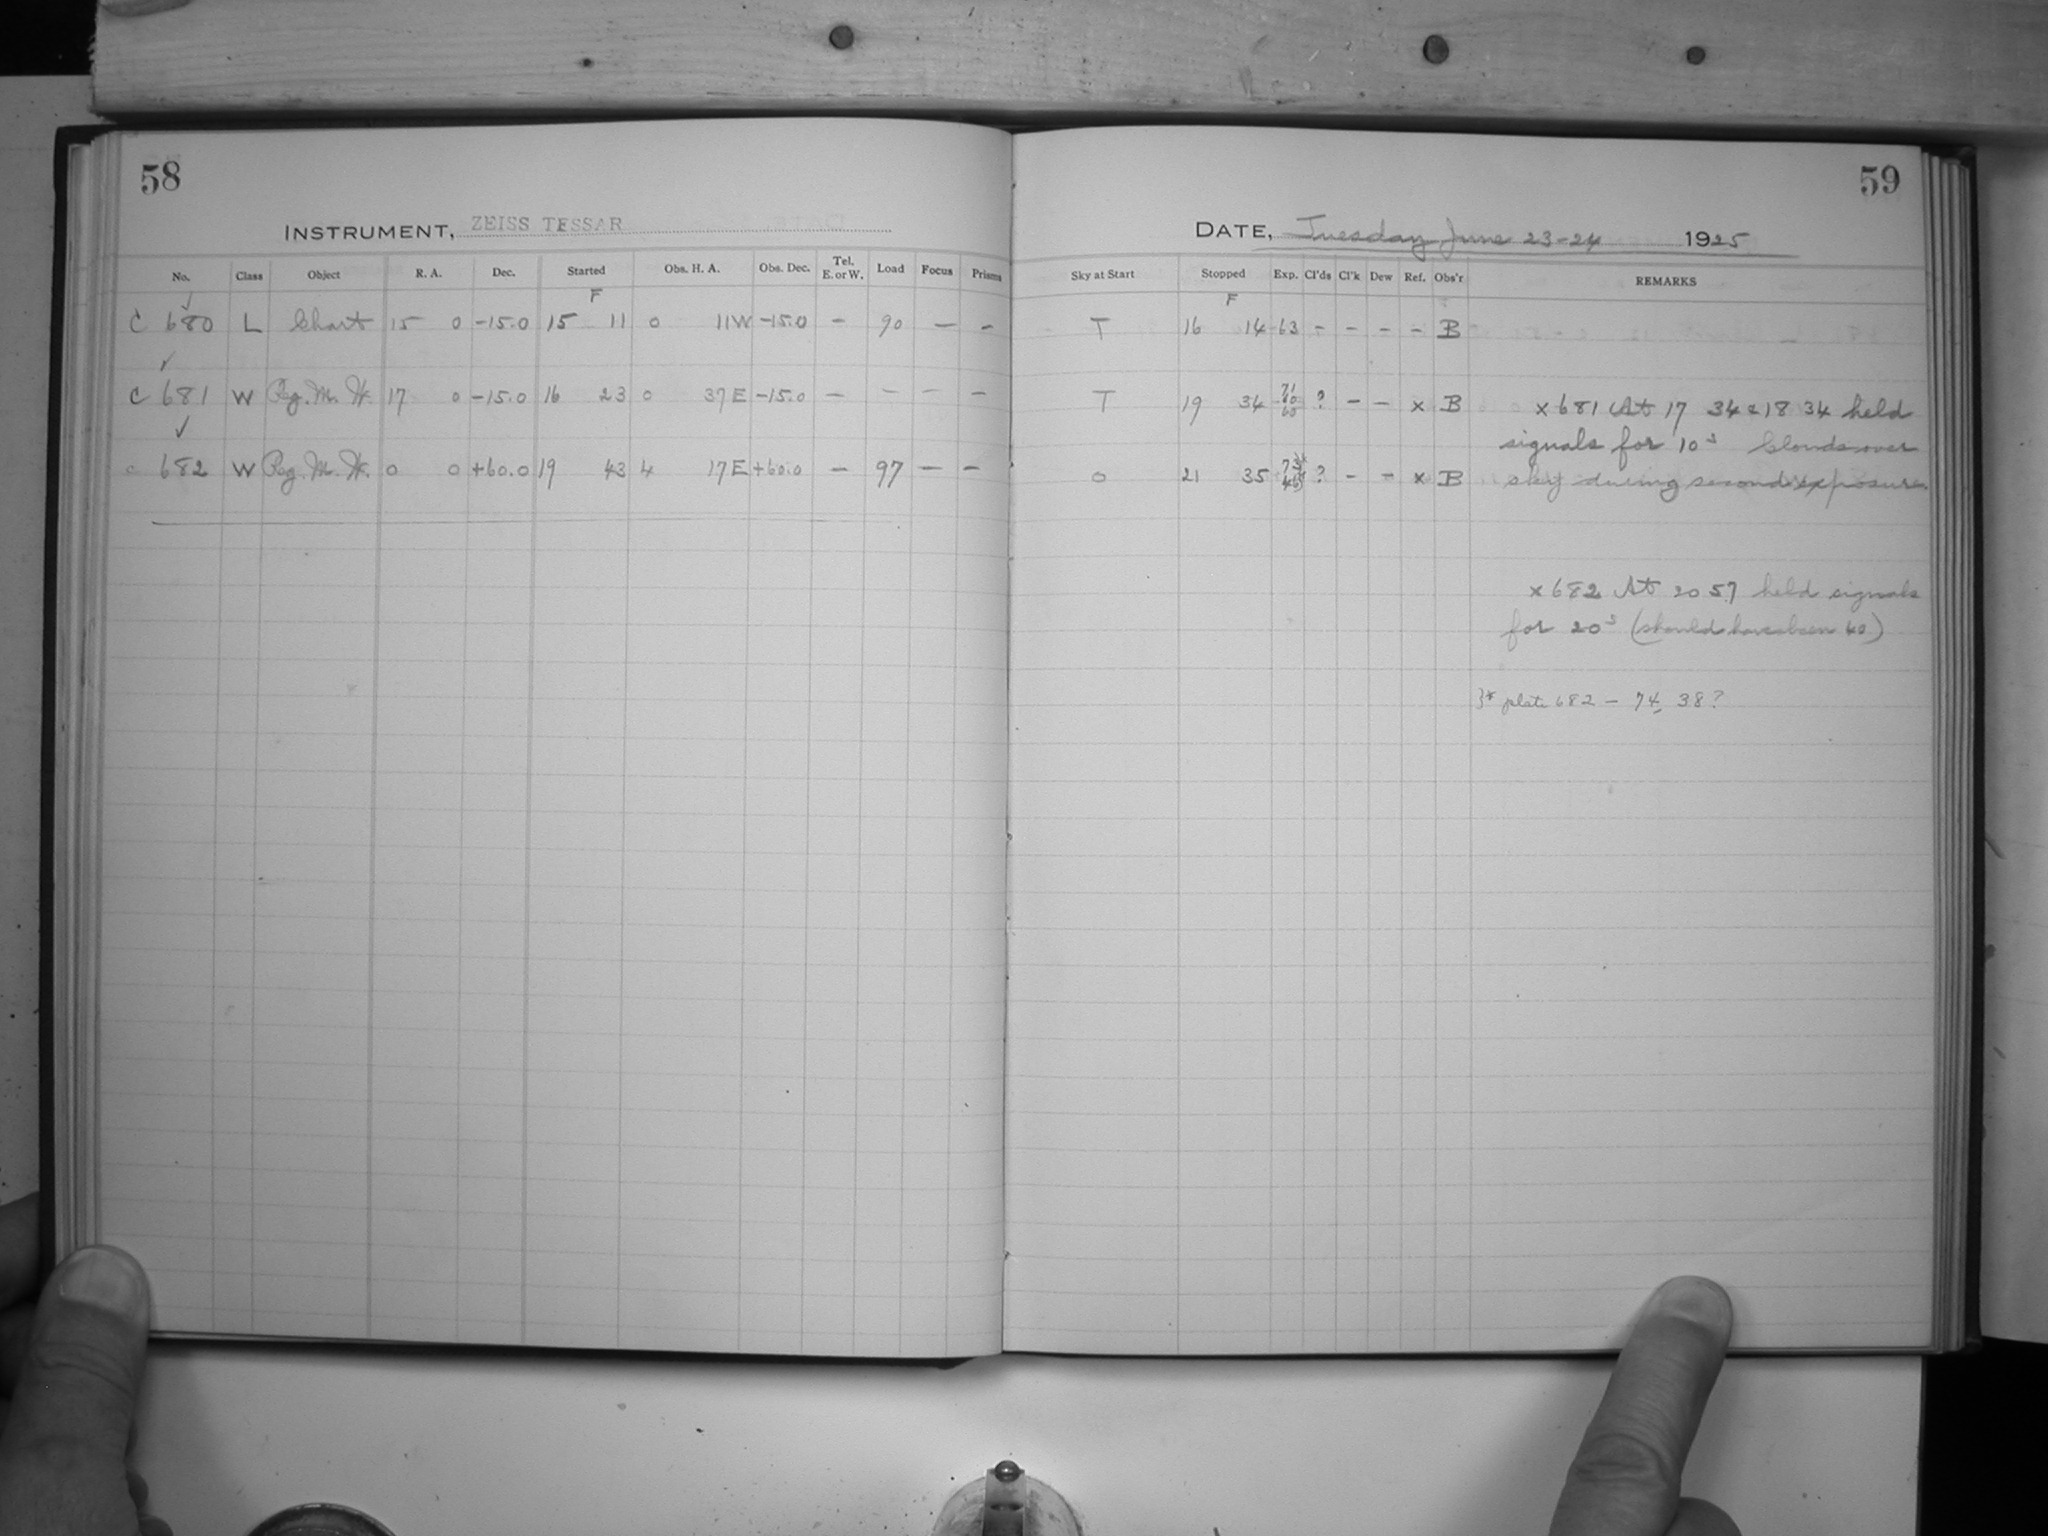 58
INSTRUMENT, ZEISS TESSAR
No. Class Object R. A. Dec. Started Obs. H. A. Obs. Dec. Tel. E. or W. Load Focus Prisms
F
C 680 L Chart 15 0 -15.0 15 11 0 11W -15.0 - 90 - -
C 681 W Reg. M. W. 17 0 -15.0 16 23 0 37E -15.0 - - - -
c 682 W Reg. M. W. 0 0 +60.0 19 43 4 17E +60.0 - 97 - -
59
DATE, Tuesday June 23-24 1925
Sky at Start Stopped Exp. Cl'ds Cl'k Dew Ref. Obs'r REMARKS
F
T 16 14 63 - - - - B
T 19 34 71 60 60 ? - - x B x 681 At 17 34 & 18 34 held
signals for 10s Clouds over
O 21 35 ? - - x B sky during second exposure.
x 682 At 20 57 held signals
for 20s (should have been 40)
}* plate 682 - 74, 38?